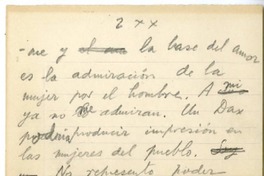 2 x x
-me y la base del amor
es la admiración de la
mujer por el hombre. A mi
ya no me admiran. Un Dax
podria producir impresión en
las mujeres del pueblo.
No represento poder